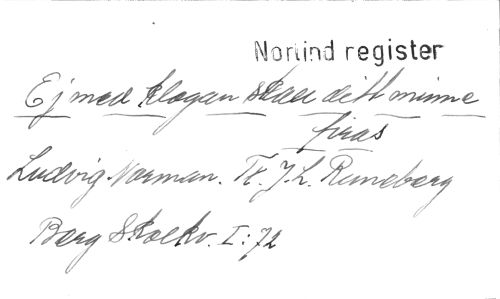 Norlind register
Ej med klagan skall ditt minne
firas
Ludvig Norman. Tt. J. L. Runeberg
Berg Skolkv. I:72